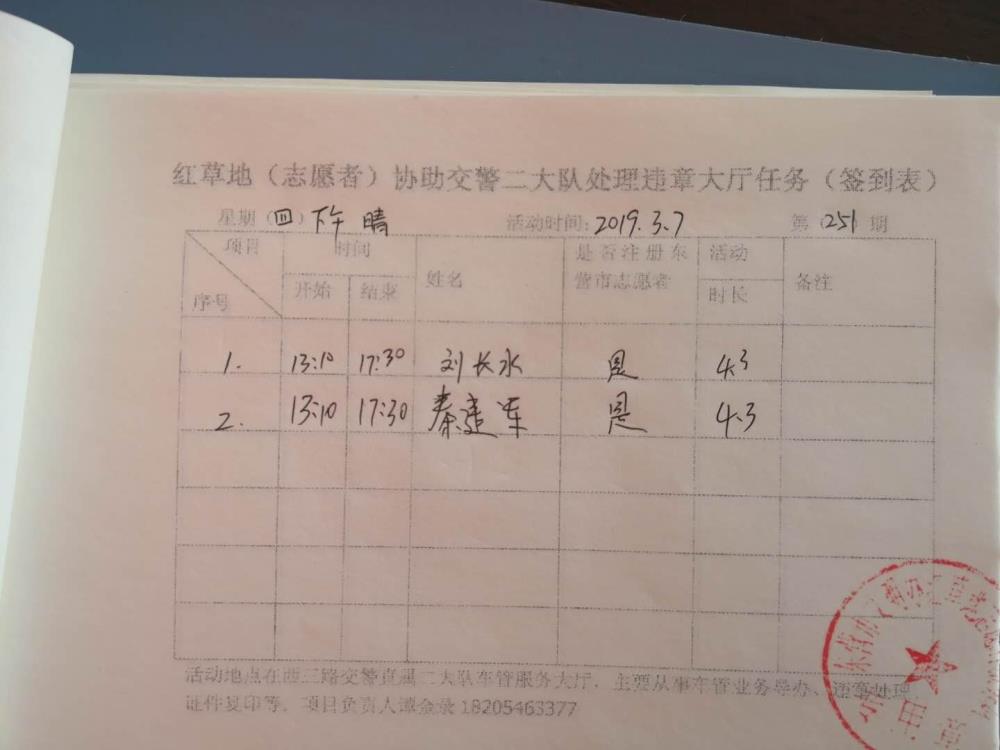 红草地（志愿者）协助交警二大队处理违章大厅任务（签到表）
星期（四）下午 晴 活动时间: 2019.3.7 第（251）期
项目 时间 是否注册东 活动
姓名 营市志愿者 备注
序号 开始 结束 时长
1. 13:10 17:30 刘长水 是 4.3
2. 13:10 17:30 秦建军 是 4.3
活动地点在西三路交警直属二大队车管服务大厅，主要从事车管业务导办、违章处理、
证件复印等。项目负责人谭金录 18205463377